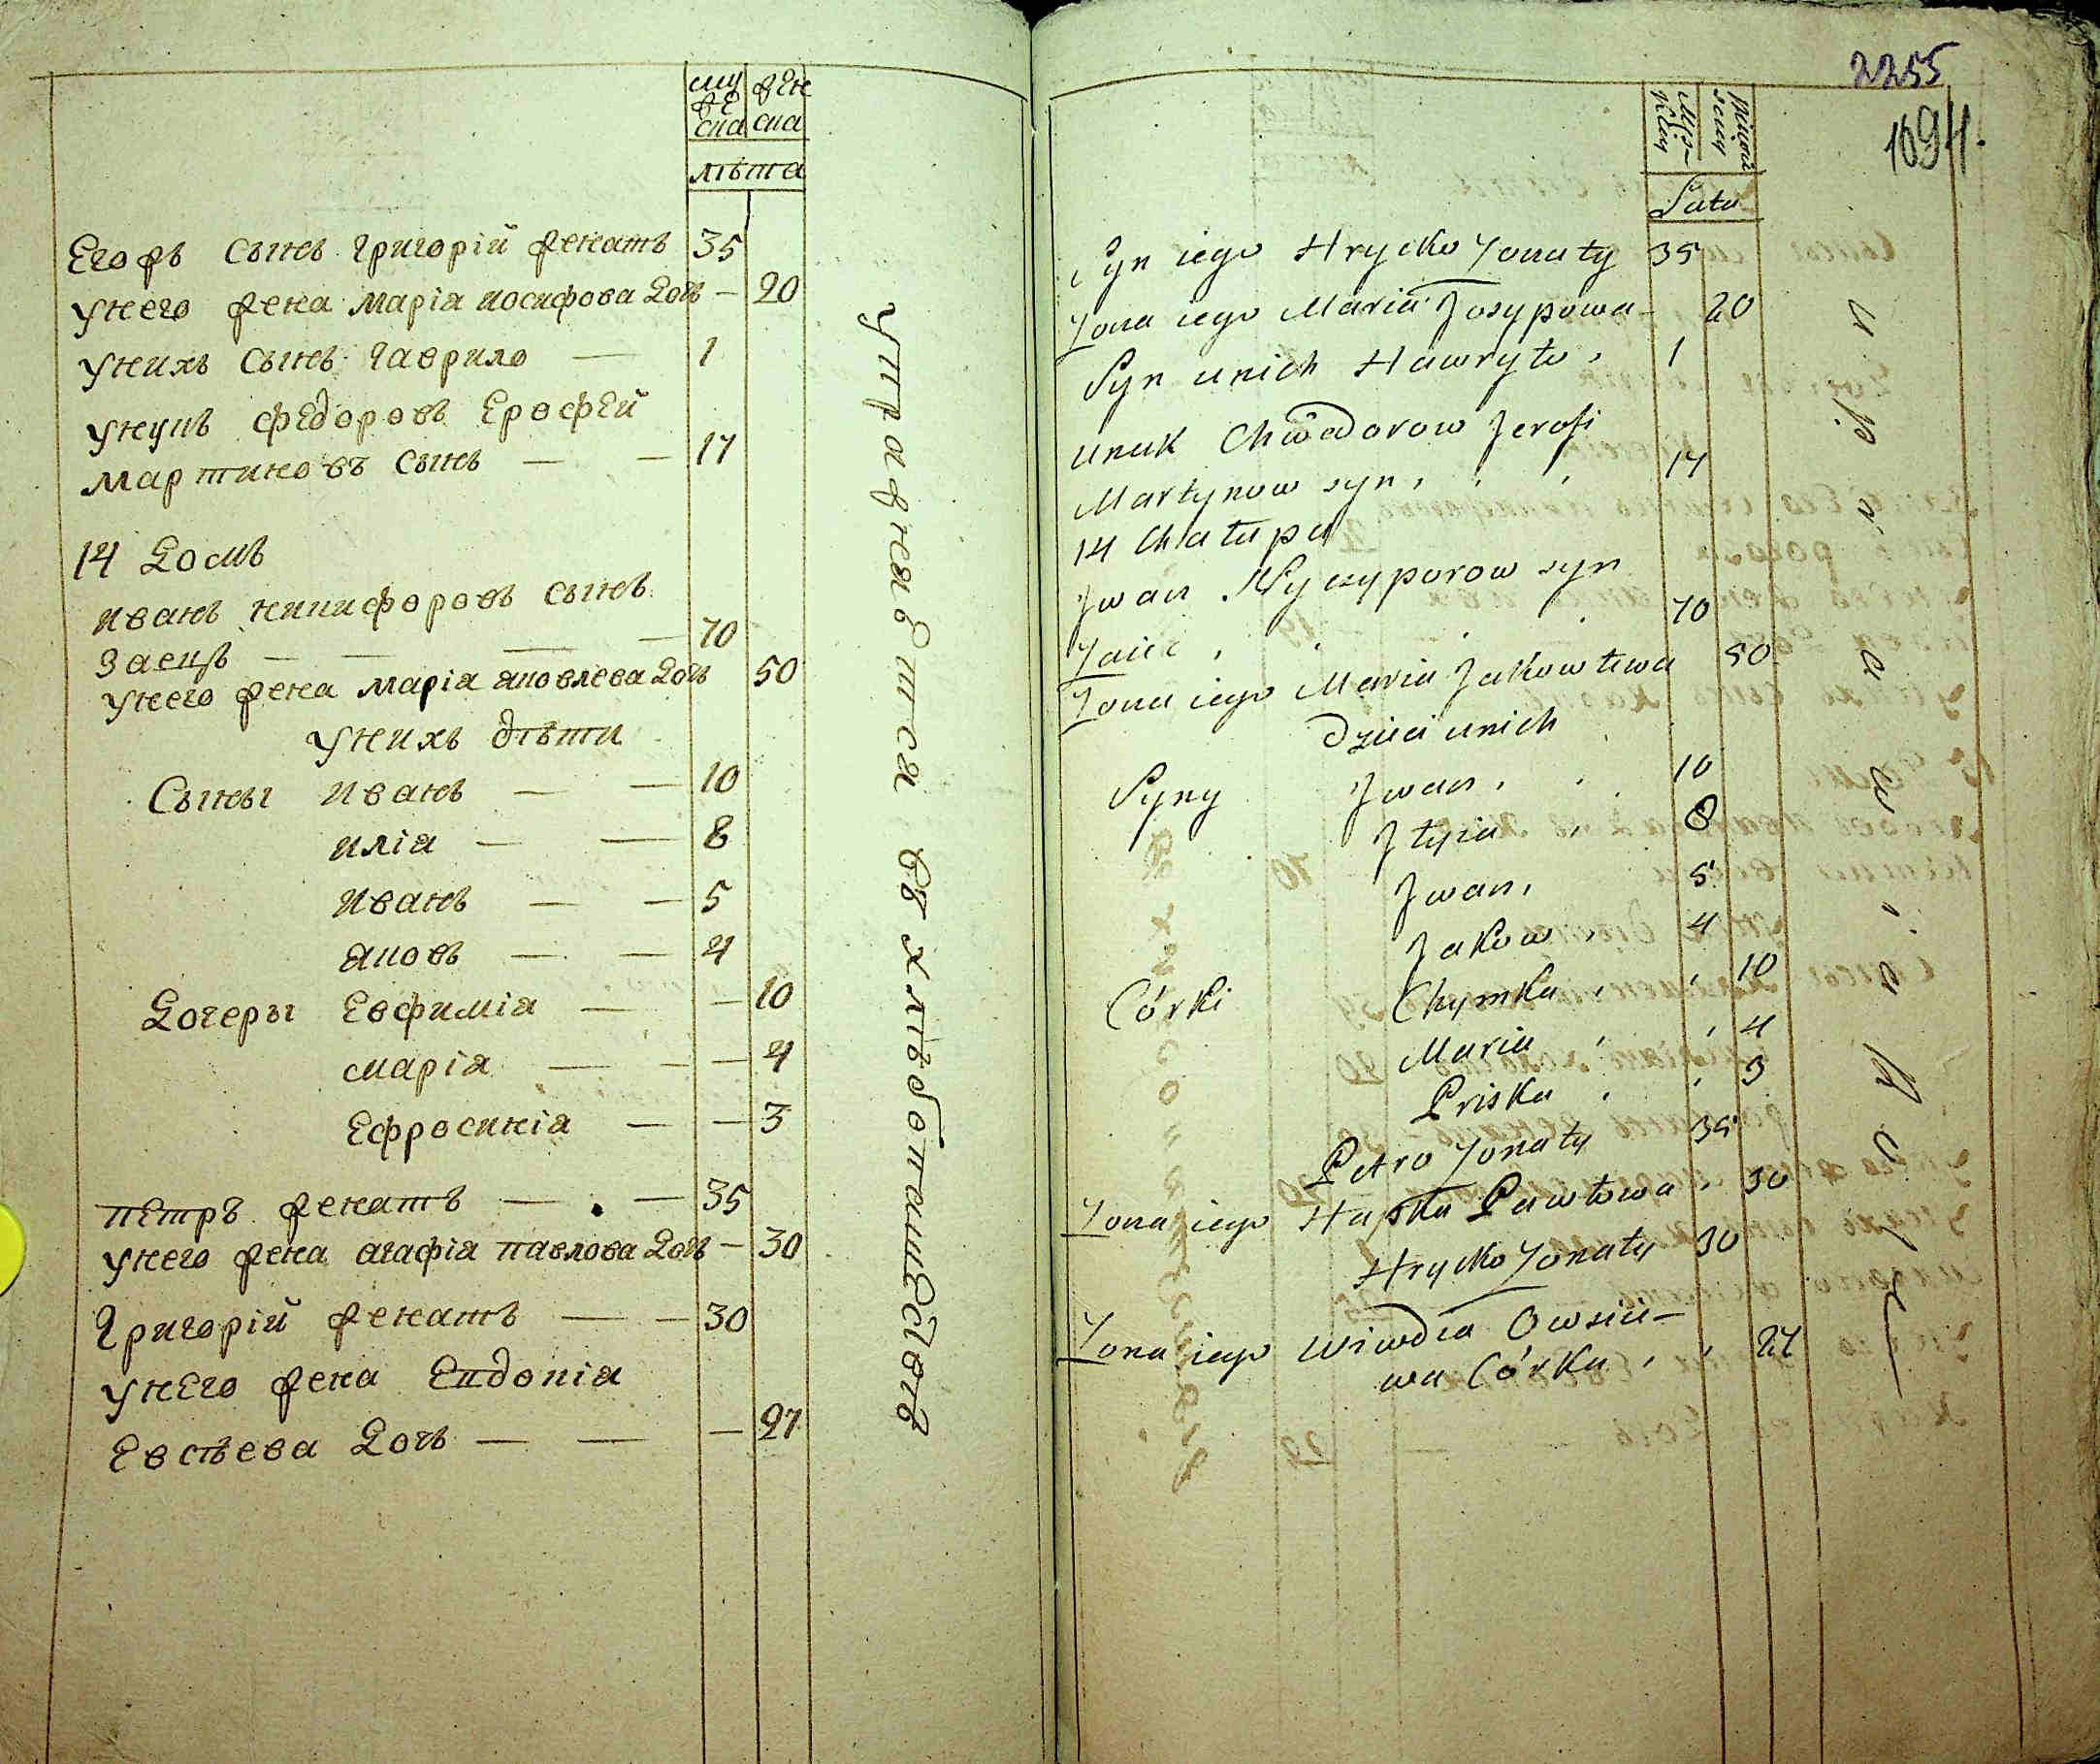 муже ска
жен ска
лѣта
Егоръ сынъ григорій женатъ 35
унего жена марія иосифова дочь — 20
унихъ сынъ гаврило — 1
унукъ федоровъ Ерофей
мартиновъ сынъ — — 17
14 домъ
иванъ никифоровъ сынъ
заецъ — — — — 70
унего жена марія яковлева дочь 50
унихъ дѣти
Сыны иванъ — — 10
илія — — 8
иванъ — — 5
яковъ — — 4
дочеры Евфимія — — 10
марія — — — 4
Ефросинія — — 3
петръ женатъ — . — 35
унего жена агафія павлова дочь — 30
григорій женатъ — — 30
унего жена Евдокія
Евсѣева дочь — — — 27
упражняется въ хлѣбопашествѣ
2255
1094.
Lata
Syn iego Hrycko Zonaty 35
Zona iego Maria Josypowa — 20
Syn unich Hawryło, 1
unuk Chwedorow Jerofi
Martynow syn, , , 17
14 Chałupa
Jwan Nyczyporow syn
Zaiec , , , , 70
Zona iego Maria Jakowlewa 50
Dzieci unich
Syny Jwan, , 10
Jlyia , 8
Jwan, 5
Jakow , 4
Córki Chymka , , 10
Maria , , 4
Priska , , 3
Petro Zonaty 35
Zona iego Hapka Pawłowa , 30
Hrycko Zonaty 30
Zona iego Wiwdia Owsie-
wa Córka , , 27